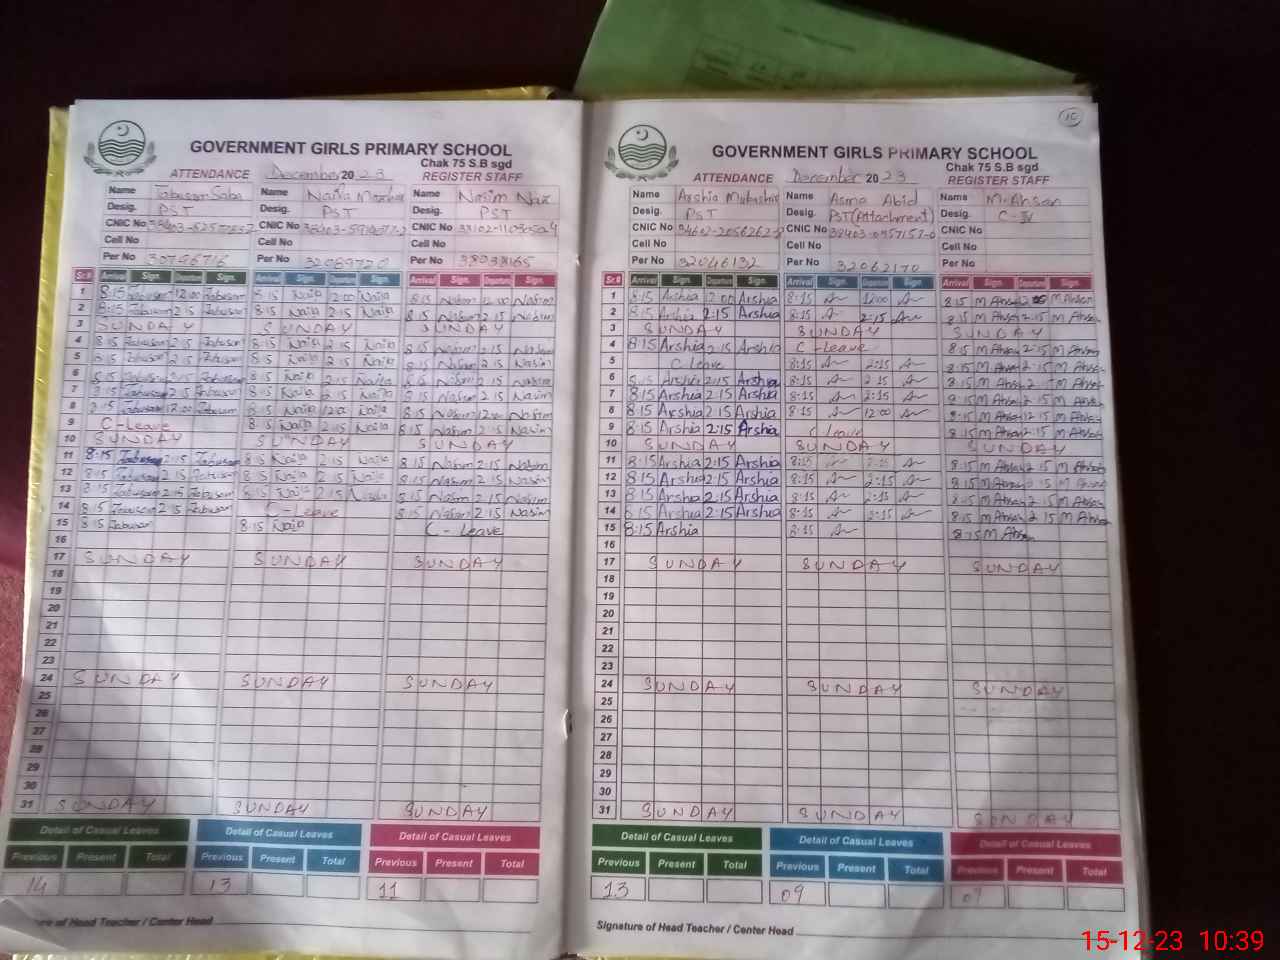 GOVERNMENT GIRLS PRIMARY SCHOOL
Chak 75 S.B sgd
ATTENDANCE December 2023 REGISTER STAFF
Name Tabusam Saba Name Naila Name Nasim Naz
Desig. PST Desig. PST Desig. PST
CNIC No CNIC No CNIC No
Cell No Cell No Cell No
Per No Per No Per No
Sr.# Arrival Sign. Departure Sign. Arrival Sign. Departure Sign. Arrival Sign. Departure Sign.
1 8:15 Tabusam 12:00 Tabusam 8:15 Naila 12:00 Naila 8:15 Nasim 12:00 Nasim
2 8:15 Tabusam 2:15 Tabusam 8:15 Naila 2:15 Naila 8:15 Nasim 2:15 Nasim
3 SUNDAY SUNDAY SUNDAY
4 8:15 Tabusam 2:15 Tabusam 8:15 Naila 2:15 Naila 8:15 Nasim 2:15 Nasim
5 8:15 Tabusam 2:15 Tabusam 8:15 Naila 2:15 Naila 8:15 Nasim 2:15 Nasim
6 8:15 Tabusam 2:15 Tabusam 8:15 Naila 2:15 Naila 8:15 Nasim 2:15 Nasim
7 8:15 Tabusam 2:15 Tabusam 8:15 Naila 2:15 Naila 8:15 Nasim 2:15 Nasim
8 8:15 Tabusam 12:00 Tabusam 8:15 Naila 12:00 Naila 8:15 Nasim 12:00 Nasim
9 C-Leave 8:15 Naila 2:15 Naila 8:15 Nasim 2:15 Nasim
10 SUNDAY SUNDAY SUNDAY
11 8:15 Tabusam 2:15 Tabusam 8:15 Naila 2:15 Naila 8:15 Nasim 2:15 Nasim
12 8:15 Tabusam 2:15 Tabusam 8:15 Naila 2:15 Naila 8:15 Nasim 2:15 Nasim
13 8:15 Tabusam 2:15 Tabusam 8:15 Naila 2:15 Naila 8:15 Nasim 2:15 Nasim
14 8:15 Tabusam 2:15 Tabusam C-Leave 8:15 Nasim 2:15 Nasim
15 8:15 Tabusam 8:15 Naila C-Leave
16
17 SUNDAY SUNDAY SUNDAY
18
19
20
21
22
23
24 SUNDAY SUNDAY SUNDAY
25
26
27
28
29
30
31 SUNDAY SUNDAY SUNDAY
Detail of Casual Leaves Detail of Casual Leaves Detail of Casual Leaves
Previous Present Total Previous Present Total Previous Present Total
14 13 11
ure of Head Teacher / Center Head
10
GOVERNMENT GIRLS PRIMARY SCHOOL
Chak 75 S.B sgd
ATTENDANCE December 2023 REGISTER STAFF
Name Arshia Mubashir Name Asma Abid Name M. Ahsan
Desig. PST Desig. PST(Attachment) Desig. C-IV
CNIC No CNIC No CNIC No
Cell No Cell No Cell No
Per No 32046132 Per No 32062170 Per No
Sr.# Arrival Sign. Departure Sign. Arrival Sign. Departure Sign. Arrival Sign. Departure Sign.
1 8:15 Arshia 12:00 Arshia 8:15 12:00 8:15 M Ahsan M Ahsan
2 8:15 Arshia 2:15 Arshia 8:15 2:15 8:15 M Ahsan 2:15 M Ahsan
3 SUNDAY SUNDAY SUNDAY
4 8:15 Arshia 2:15 Arshia C-Leave 8:15 M Ahsan 2:15 M Ahsan
5 C Leave 8:15 2:15 8:15 M Ahsan 2:15 M Ahsan
6 8:15 Arshia 2:15 Arshia 8:15 2:15 8:15 M Ahsan 2:15 M Ahsan
7 8:15 Arshia 2:15 Arshia 8:15 2:15 8:15 M Ahsan 2:15 M Ahsan
8 8:15 Arshia 2:15 Arshia 8:15 12:00 8:15 M Ahsan 12:15 M Ahsan
9 8:15 Arshia 2:15 Arshia C Leave 8:15 M Ahsan 2:15 M Ahsan
10 SUNDAY SUNDAY SUNDAY
11 8:15 Arshia 2:15 Arshia 8:15 2:15 8:15 M Ahsan 2:15 M Ahsan
12 8:15 Arshia 2:15 Arshia 8:15 2:15 8:15 M Ahsan 2:15 M Ahsan
13 8:15 Arshia 2:15 Arshia 8:15 2:15 8:15 M Ahsan 2:15 M Ahsan
14 8:15 Arshia 2:15 Arshia 8:15 2:15 8:15 M Ahsan 2:15 M Ahsan
15 8:15 Arshia 8:15 8:15 M Ahsan
16
17 SUNDAY SUNDAY SUNDAY
18
19
20
21
22
23
24 SUNDAY SUNDAY SUNDAY
25
26
27
28
29
30
31 SUNDAY SUNDAY SUNDAY
Detail of Casual Leaves Detail of Casual Leaves Detail of Casual Leaves
Previous Present Total Previous Present Total Previous Present Total
13 09
Signature of Head Teacher / Center Head
15-12-23 10:39